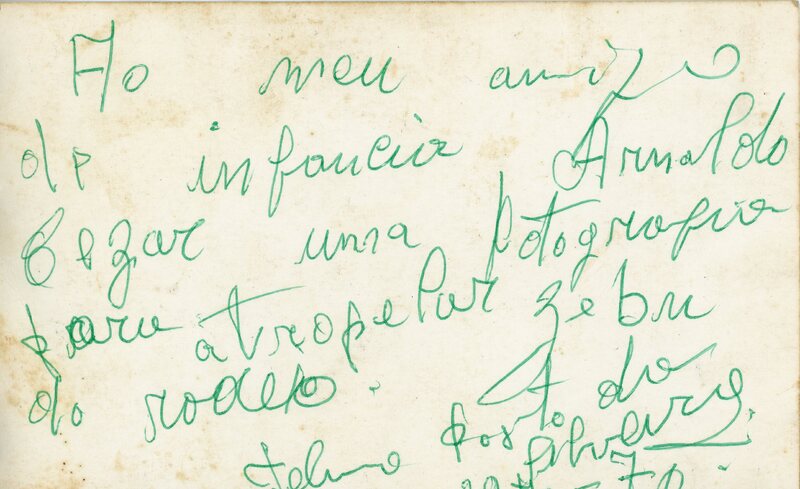 Ao meu amigo
de infancia Arnaldo
Cezar uma fotografia
para atropelar zebu
do rodeio.
Telmo
70.